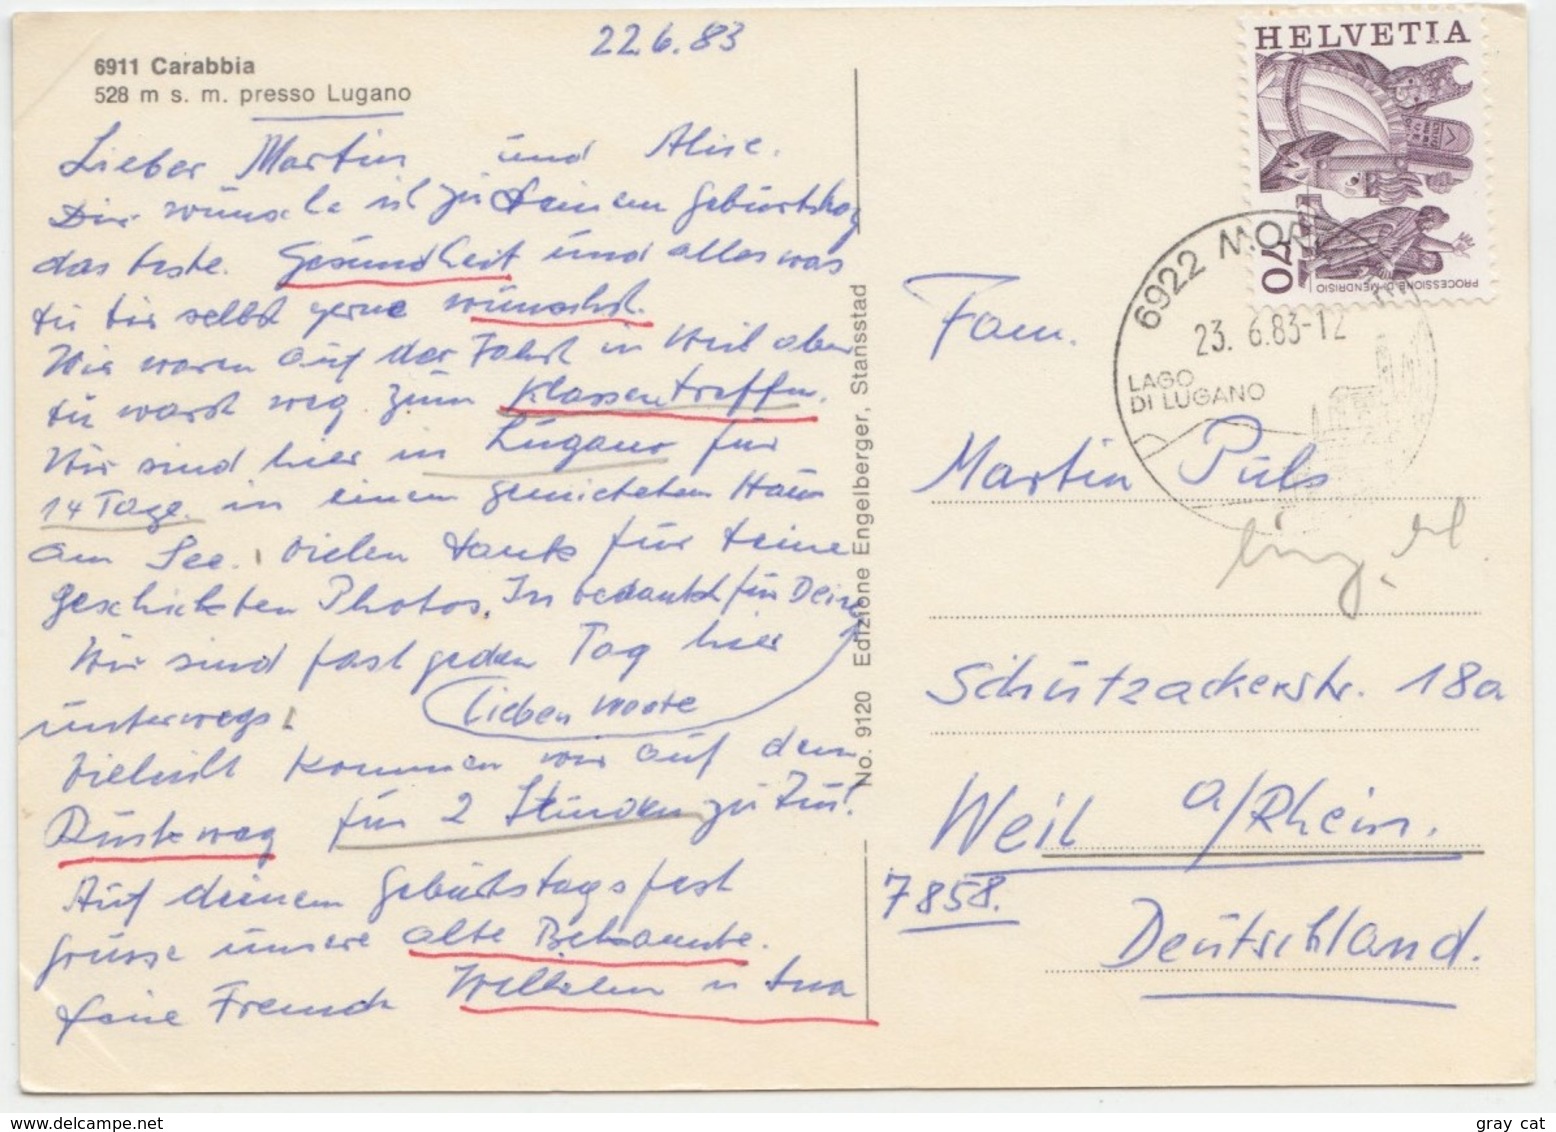 22.6.83
6911 Carabbia
528 m s. m. presso Lugano
Lieber Martin und Alise.
Dir wünsche ich zu deinem Geburtstag
das beste. Gesundheit und alles was
du dir selbst gerne wünschst.
Wir waren auf der Fahrt in Weil aber
du warst weg zum Klassentreffen.
Wir sind hier in Lugano für
14 Tage. in einem gemieteten Haus
am See. Vielen dank für deine
geschickten Photos. bedankt für Deine
Wir sind fast jeden Tag hier
unterwegs! lieben Worte
Vieleicht kommen wir auf dem
für 2 Stunden zu
Auf deinem Geburtstagsfest
grüsse unsere alte Bekannte.
deine Freunde Wilhelm u
No. 9120 Edizione Engelberger, Stansstad
HELVETIA
40
PROCESSIONE DI MENDRISIO
6922 MOR
23. 6.83-12
LAGO
DI LUGANO
Fam.
Martin Puls
Schützackerstr. 18a
Weil a/Rhein.
7858.
Deutschland.
gray cat